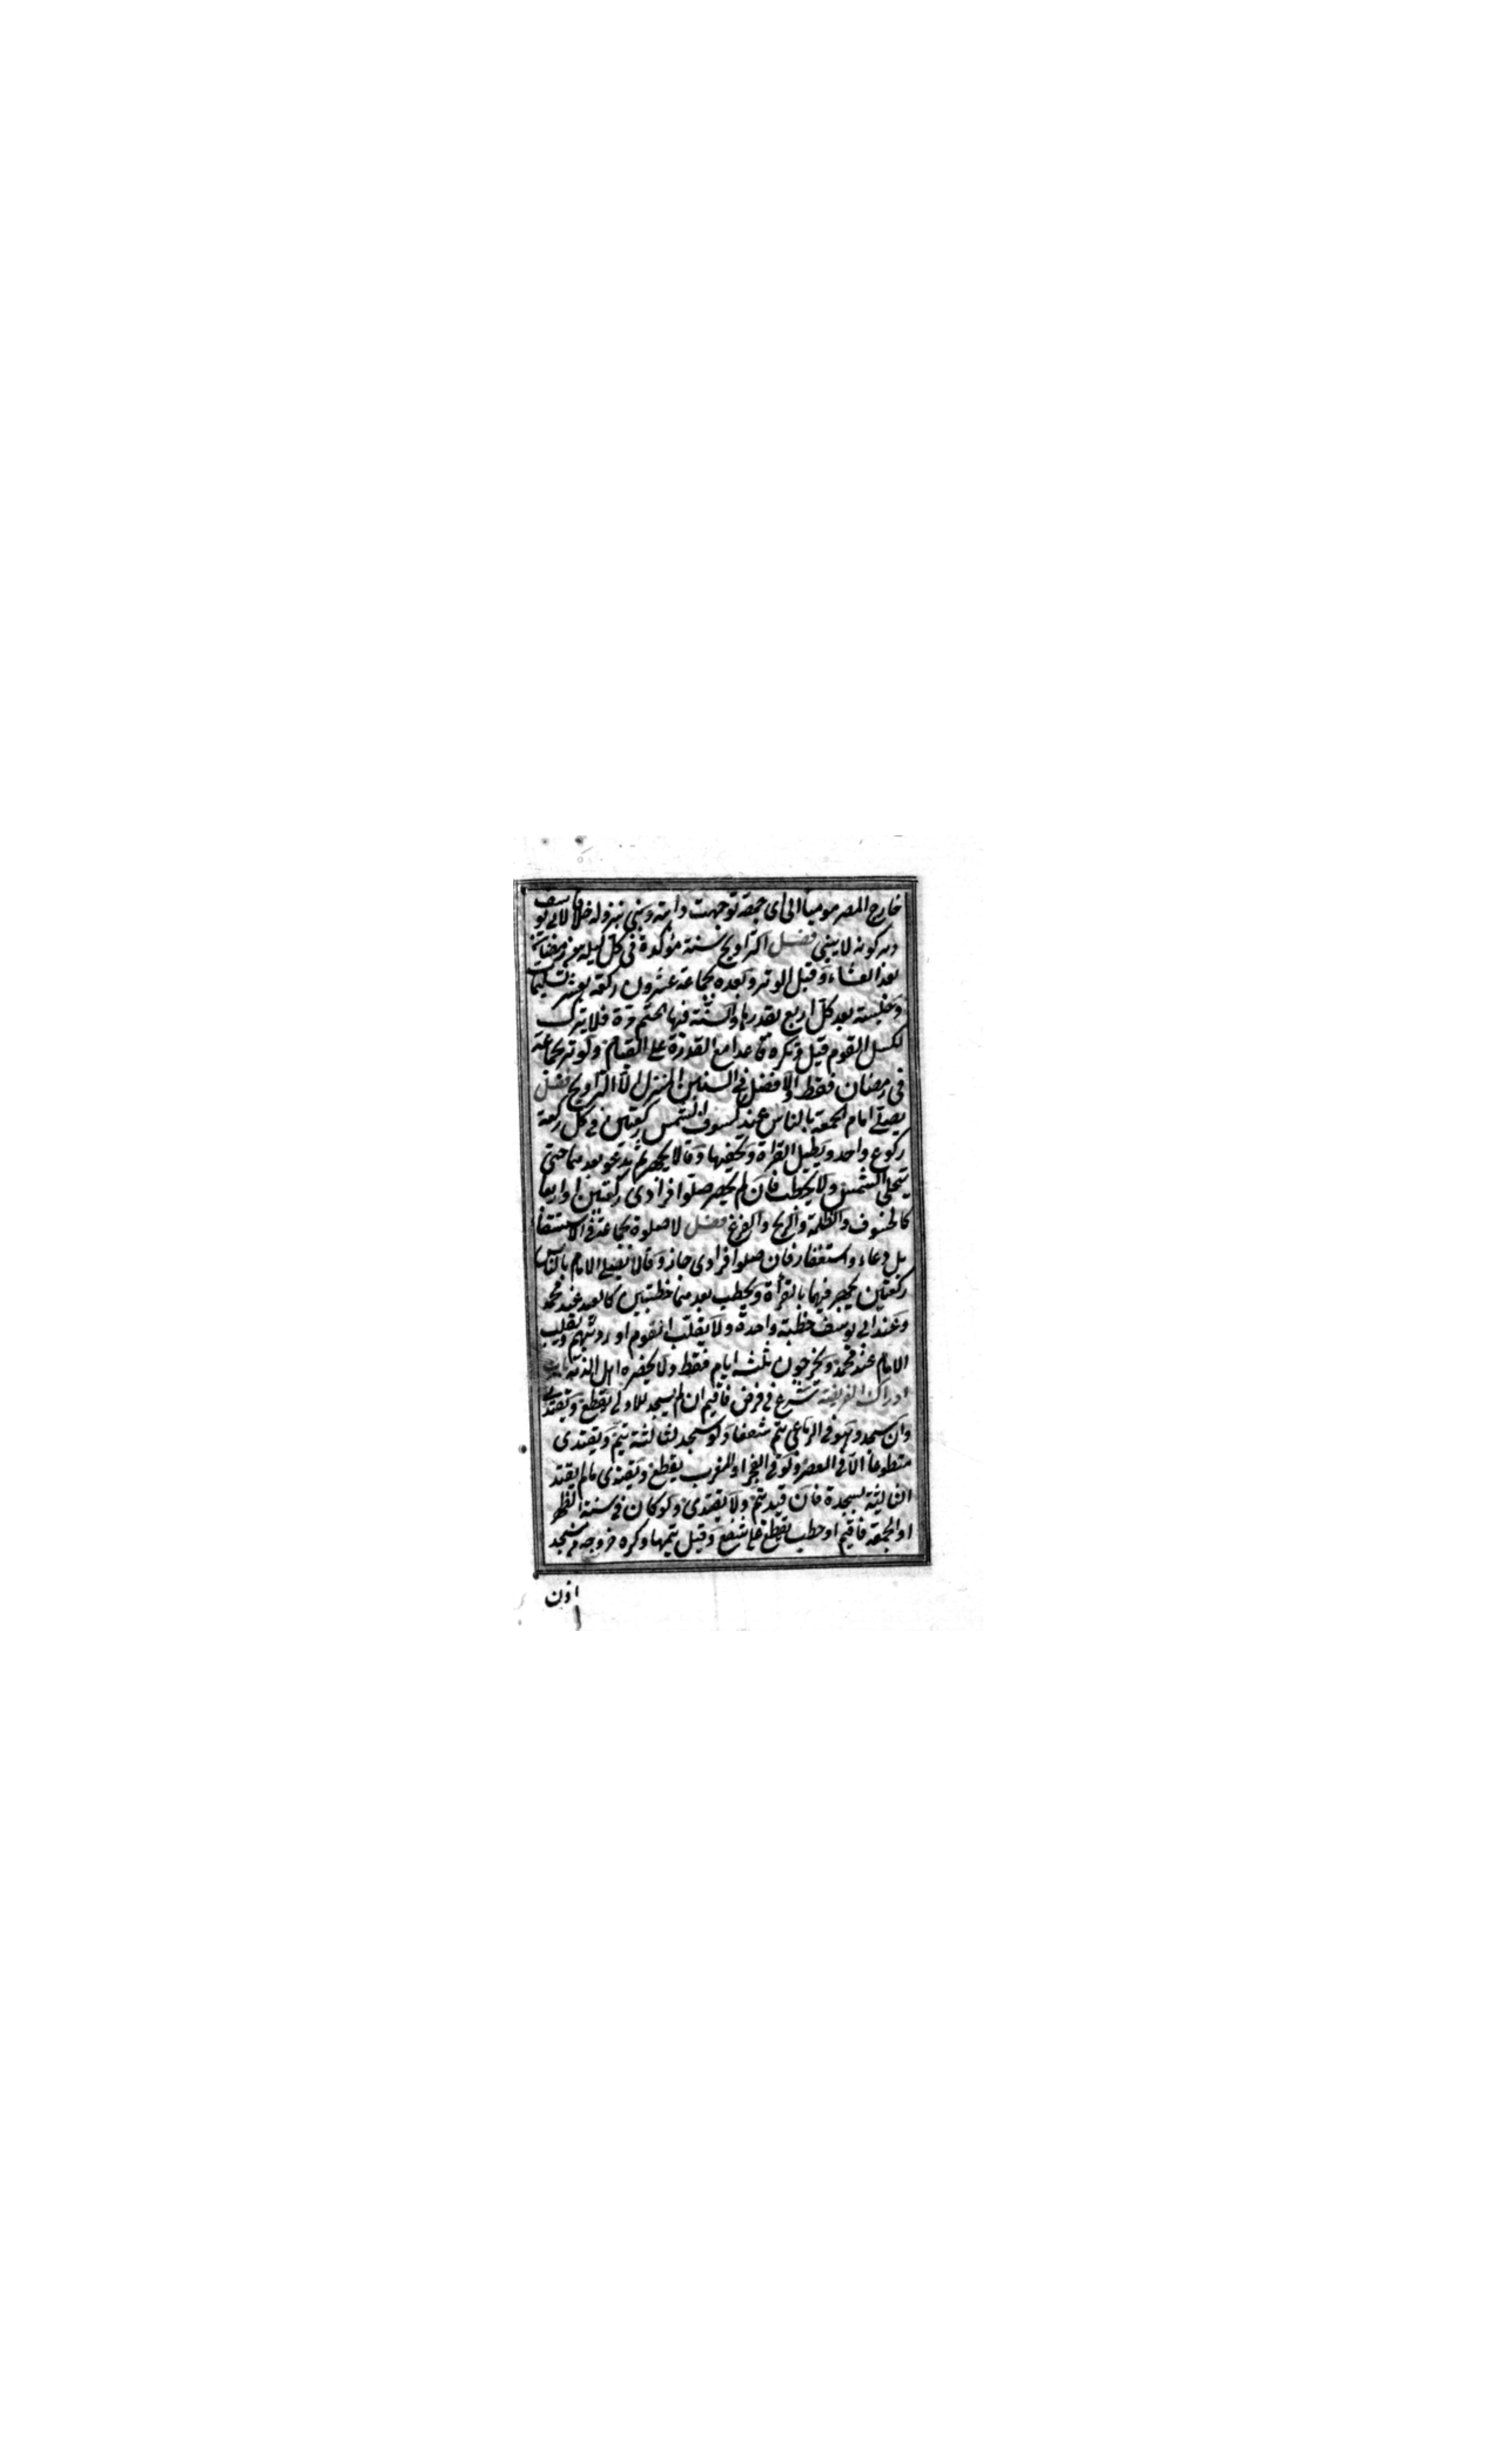 خارج المصر موميا الى اى جهة توجهت دابته وبنى بنزوله خلافا لابى يوسف
وبركوبه لا يبنى فصل التراويح سنة مؤكدة فى كل ليلة من رمضان
بعد العشاء وقبل الوتر وبعده بجماعة عشرون ركعة بعشر تسليمات
وجلسة بعد كل اربع بقدرها والسنة فيها الختم مرة فلا يترك
لكسل القوم قيل وتكره قاعدا مع القدرة على القيام ولوتر بجماعة
فى رمضان فقط والافضل فى السنن المنزل الا التراويح فصل
يصلى امام الجمعة بالناس عند كسوف الشمس ركعتين فى كل ركعة
ركوع واحد ويطيل القراة ويخفيها وقالا يجهر ثم يدعو بعدهما حتى
تنجلى الشمس ولا يخطب فان لم يحضر صلوا فرادى ركعتين او اربعا
كالخسوف والظلمة والريح والفزع فصل لا صلوة بجماعة فى الاستسقا
بل دعاء واستغفار فان صلوا فرادى جاز وقالا يصلى الامام بالناس
ركعتين يجهر فيهما بالقرأة ويخطب بعدهما خطبتين كالعيد عند محمد
وعند ابى يوسف خطبة واحدة ولا يقلب القوم ارديتهم ويقلب
الامام عند محمد ويخرجون ثلثة ايام فقط ولا يحضره اهل الذمة باب
ادراك الفريضة شرع فى فرض فاقيم ان لم يسجد للاولى يقطع ويقتدى
وان سجد وهو فى الرباعى يتم شفعا ولو سجد للثالثة يتم ويقتدى
متطوعا الا فى العصر ولو فى الفجر او المغرب يقطع ويقتدى ما لم يقيد
الثانية بسجدة فان قيد يتم ولا يقتدى ولو كان فى سنة الظهر
او الجمعة فاقيم او خطب يقطع على شفع وقيل يتمها وكره خروجه من مسجد
اذن